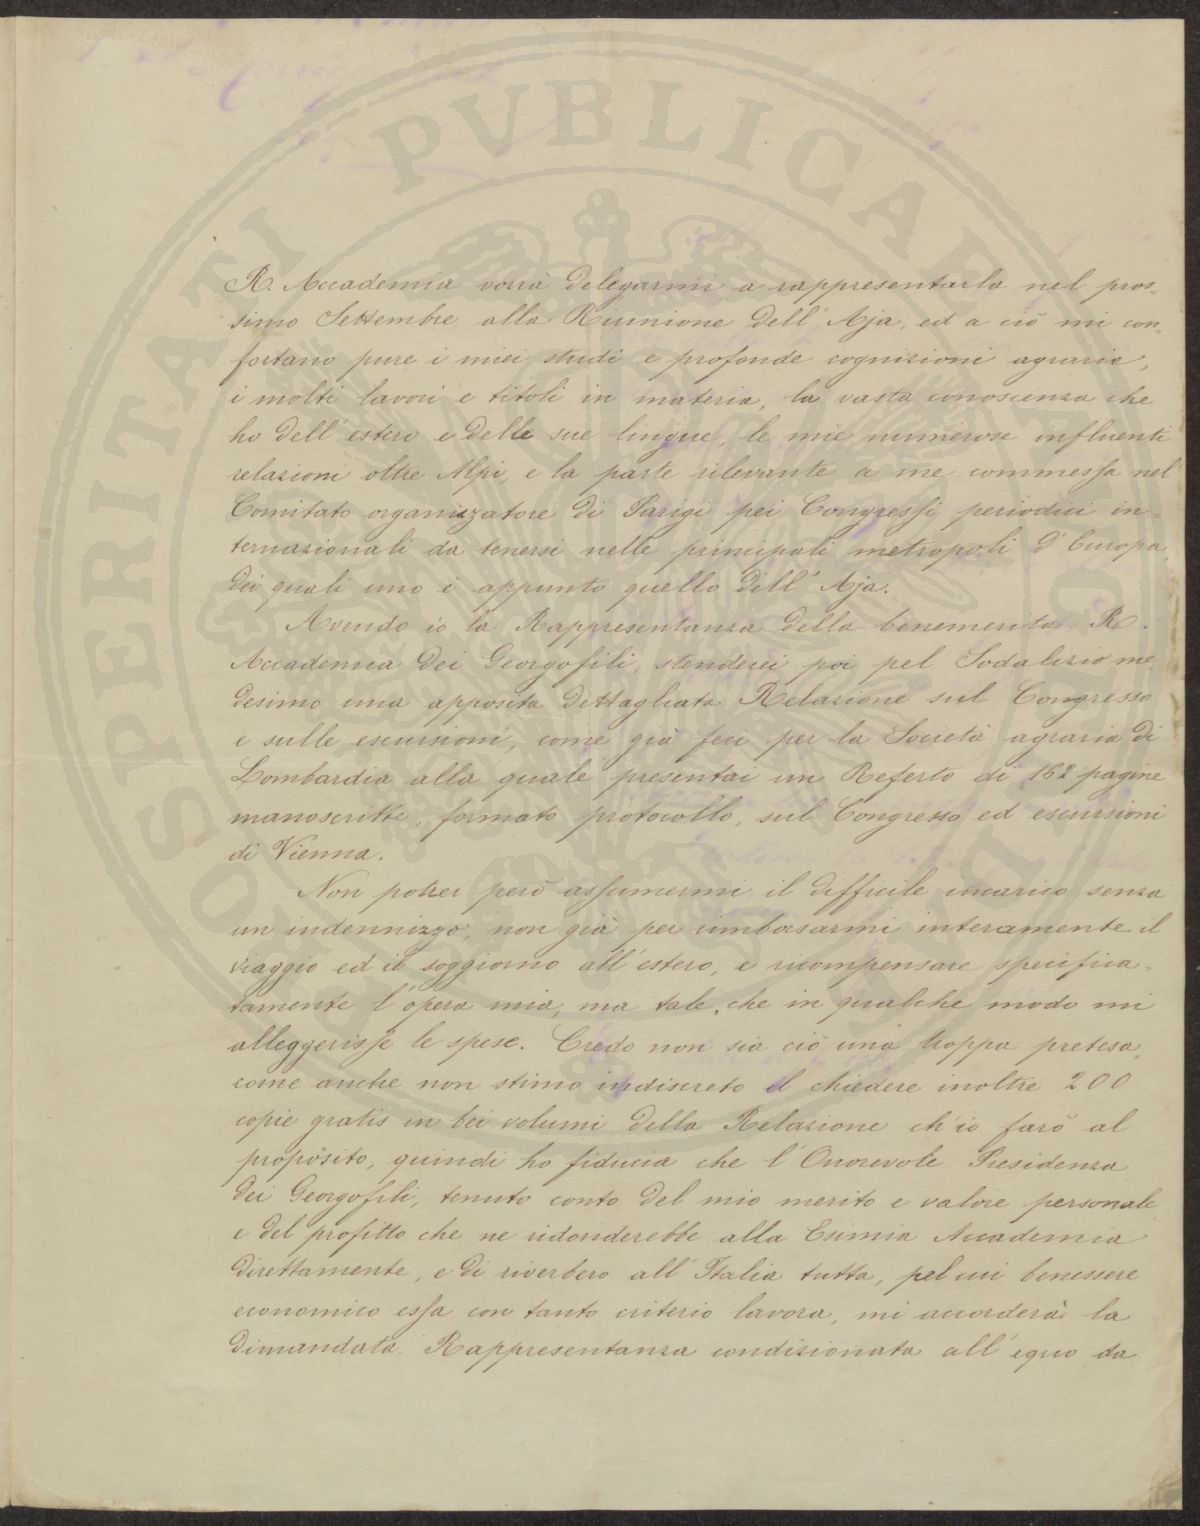 PROSPERITATI PVBLICAE
R. Accademia vorrà delegarmi a rappresentarla nel pros-
simo Settembre alla Riunione dell'Aja, ed a ciò mi con-
fortano pure i miei studi e profonde cognizioni agrarie,
i molti lavori e titoli in materia, la vasta conoscenza che
ho dell'estero e delle sue lingue, le mie numerose influenti
relazioni oltre Alpi, e la parte rilevante a me commessa nel
Comitato organizzatore di Parigi pei Congressi periodici in-
ternazionali da tenersi nelle principali metropoli d'Europa,
dei quali uno è appunto quello dell'Aja.
Avendo io la Rappresentanza della benemerita R.
Accademia dei Georgofili, stenderei poi pel Sodalizio me-
desimo una apposita dettagliata Relazione sul Congresso
e sulle escursioni, come già feci per la Società agraria di
Lombardia alla quale presentai un Referto di 162 pagine
manoscritte, formato protocollo, sul Congresso ed escursioni
di Vienna.
Non potrei però assumermi il difficile incarico senza
un indennizzo, non già per rimborsarmi interamente il
viaggio ed il soggiorno all'estero, e ricompensare specifica-
tamente l'opera mia, ma tale, che in qualche modo mi
alleggerisse le spese. Credo non sia ciò una troppa pretesa,
come anche non stimo indiscreto il chiedere inoltre 200
copie gratis in bei volumi della Relazione ch'io farò al
proposito, quindi ho fiducia che l'Onorevole Presidenza
dei Georgofili, tenuto conto del mio merito e valore personale,
e del profitto che ne ridonderebbe alla Esimia Accademia
direttamente, e di riverbero all'Italia tutta, pel cui benessere
economico essa con tanto criterio lavora, mi accorderà la
dimandata Rappresentanza condizionata all'equo da